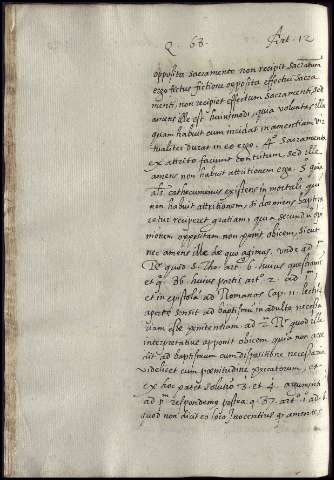 Q. 68. Art. 12
opposita sacramento non recipit sacramentum
ergo fictus fictione opposita effectui sacra
menti, non recipiet effectum sacramenti, sed
amens ille est huiusmodi, quia voluntas illa
quam habuit cum incidit in amentiam vir
tualiter durat in eo ergo. 4º sacramentū
ex attrito faciunt contritum, sed ille
amens non habuit attritionem ergo. 5º quia
alias cathecumenus existens in mortali, qui
non habuit attritionem, si dormiens baptiza
retur reciperet gratiam, quia secundum
motum oppositum non ponit obicem, sicut
nec amens ille de quo agimus. unde ad 1m
Rº quod S. Tho. artº 6. huius quæstionis,
et q. 86 huius partis artº 2. ad 1m
et in epistola ad Romanos cap. 11. lect.
aperte sensit ad baptismum in adulto necessa
riam esse pœnitentiam ad 2m Rº quod ille
interpretative apponit obicem quia non acce
dit ad baptismum cum dispositione necessaria
videlicet cum pœnitudine peccatorum,
ex hoc patet solutio 3. et 4. argumenti
ad 5m respondemus nostra q. 87. artº 1. ad
quod non dicit eo loco Innocentius quod amentes